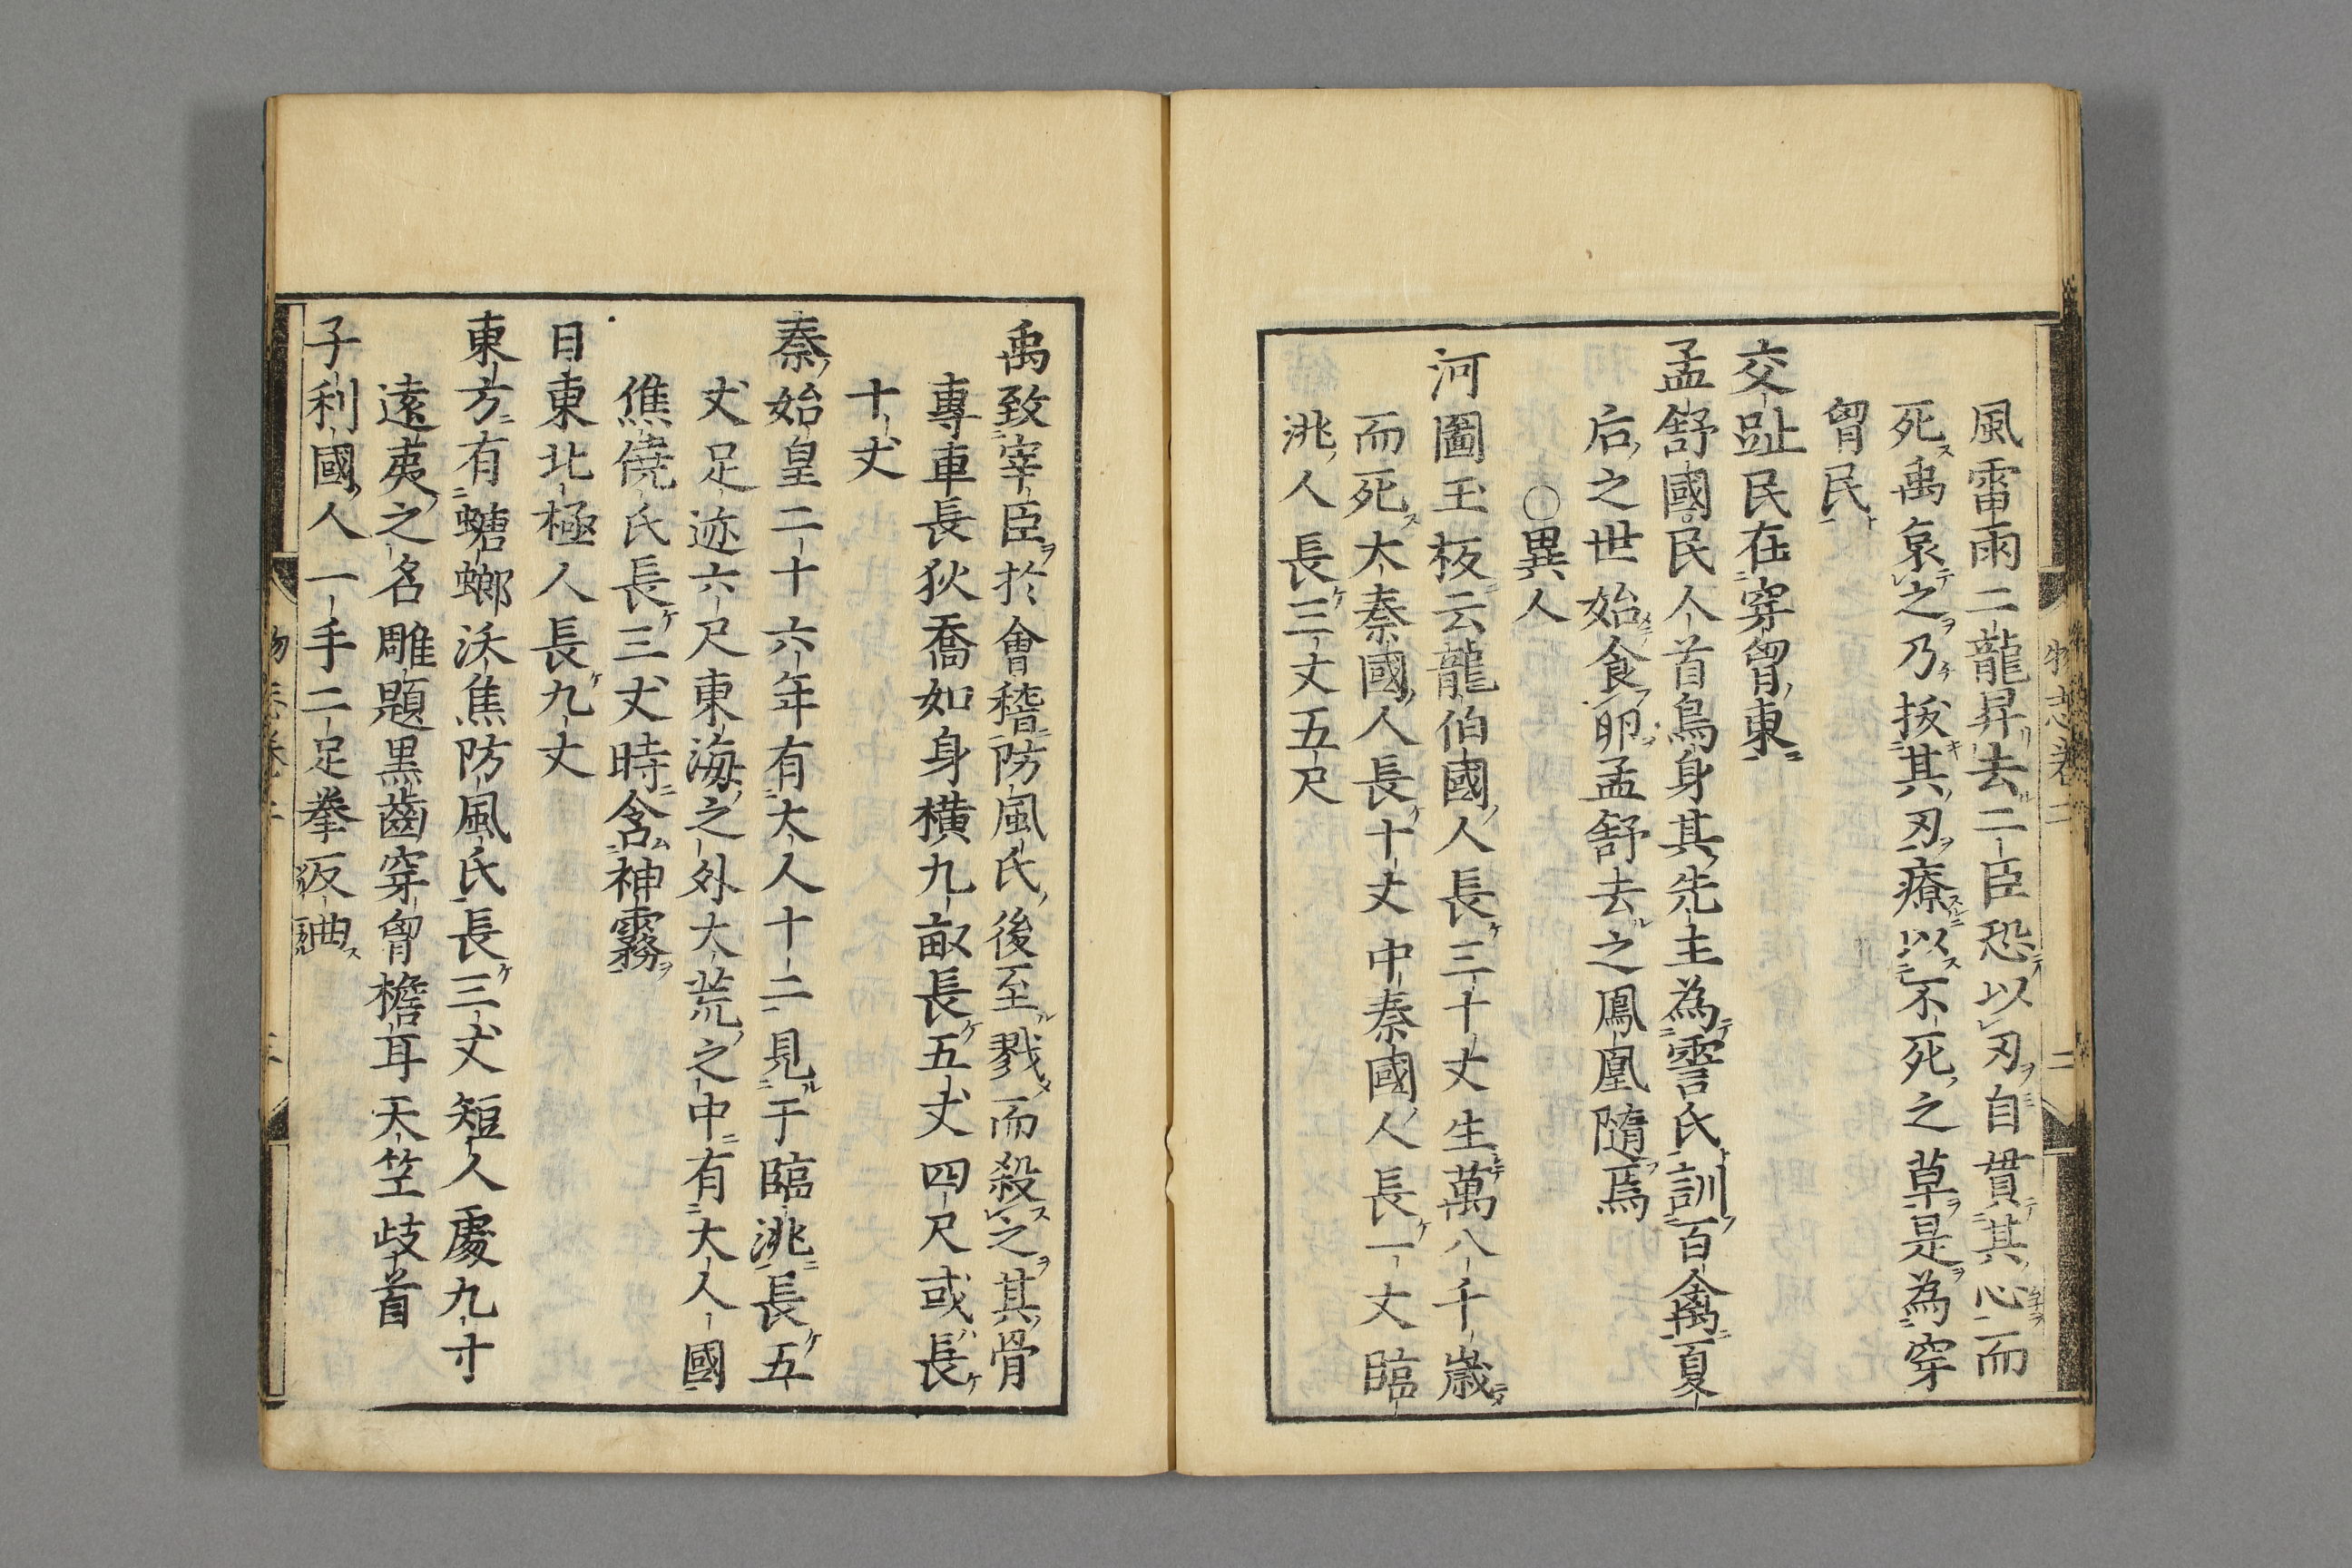 風雷雨二龍昇去二臣恐以刃自貫其心而
死禹哀之乃拔其刃療以不死之草是為穿
胷民
交趾民在穿胷東
孟舒國民人首鳥身其先主為霅氏訓百禽夏
后之世始食卵孟舒去之鳳凰隨焉
○異人
河圖玉板云龍伯國人長三十丈生萬八千歲
而死大秦國人長十丈中秦國人長一丈臨
洮人長三丈五尺
禹致宰臣於會稽防風氏後至戮而殺之其骨
專車長狄喬如身橫九畝長五丈四尺或長
十丈
秦始皇二十六年有大人十二見于臨洮長五
丈足迹六尺東海之外大荒之中有大人國
僬僥氏長三丈時含神霧
日東北極人長九丈
東方有螗螂沃焦防風氏長三丈短人處九寸
遠夷之名雕題黑齒穿胷檐耳天竺歧首
子利國人一手二足拳仮𧗕